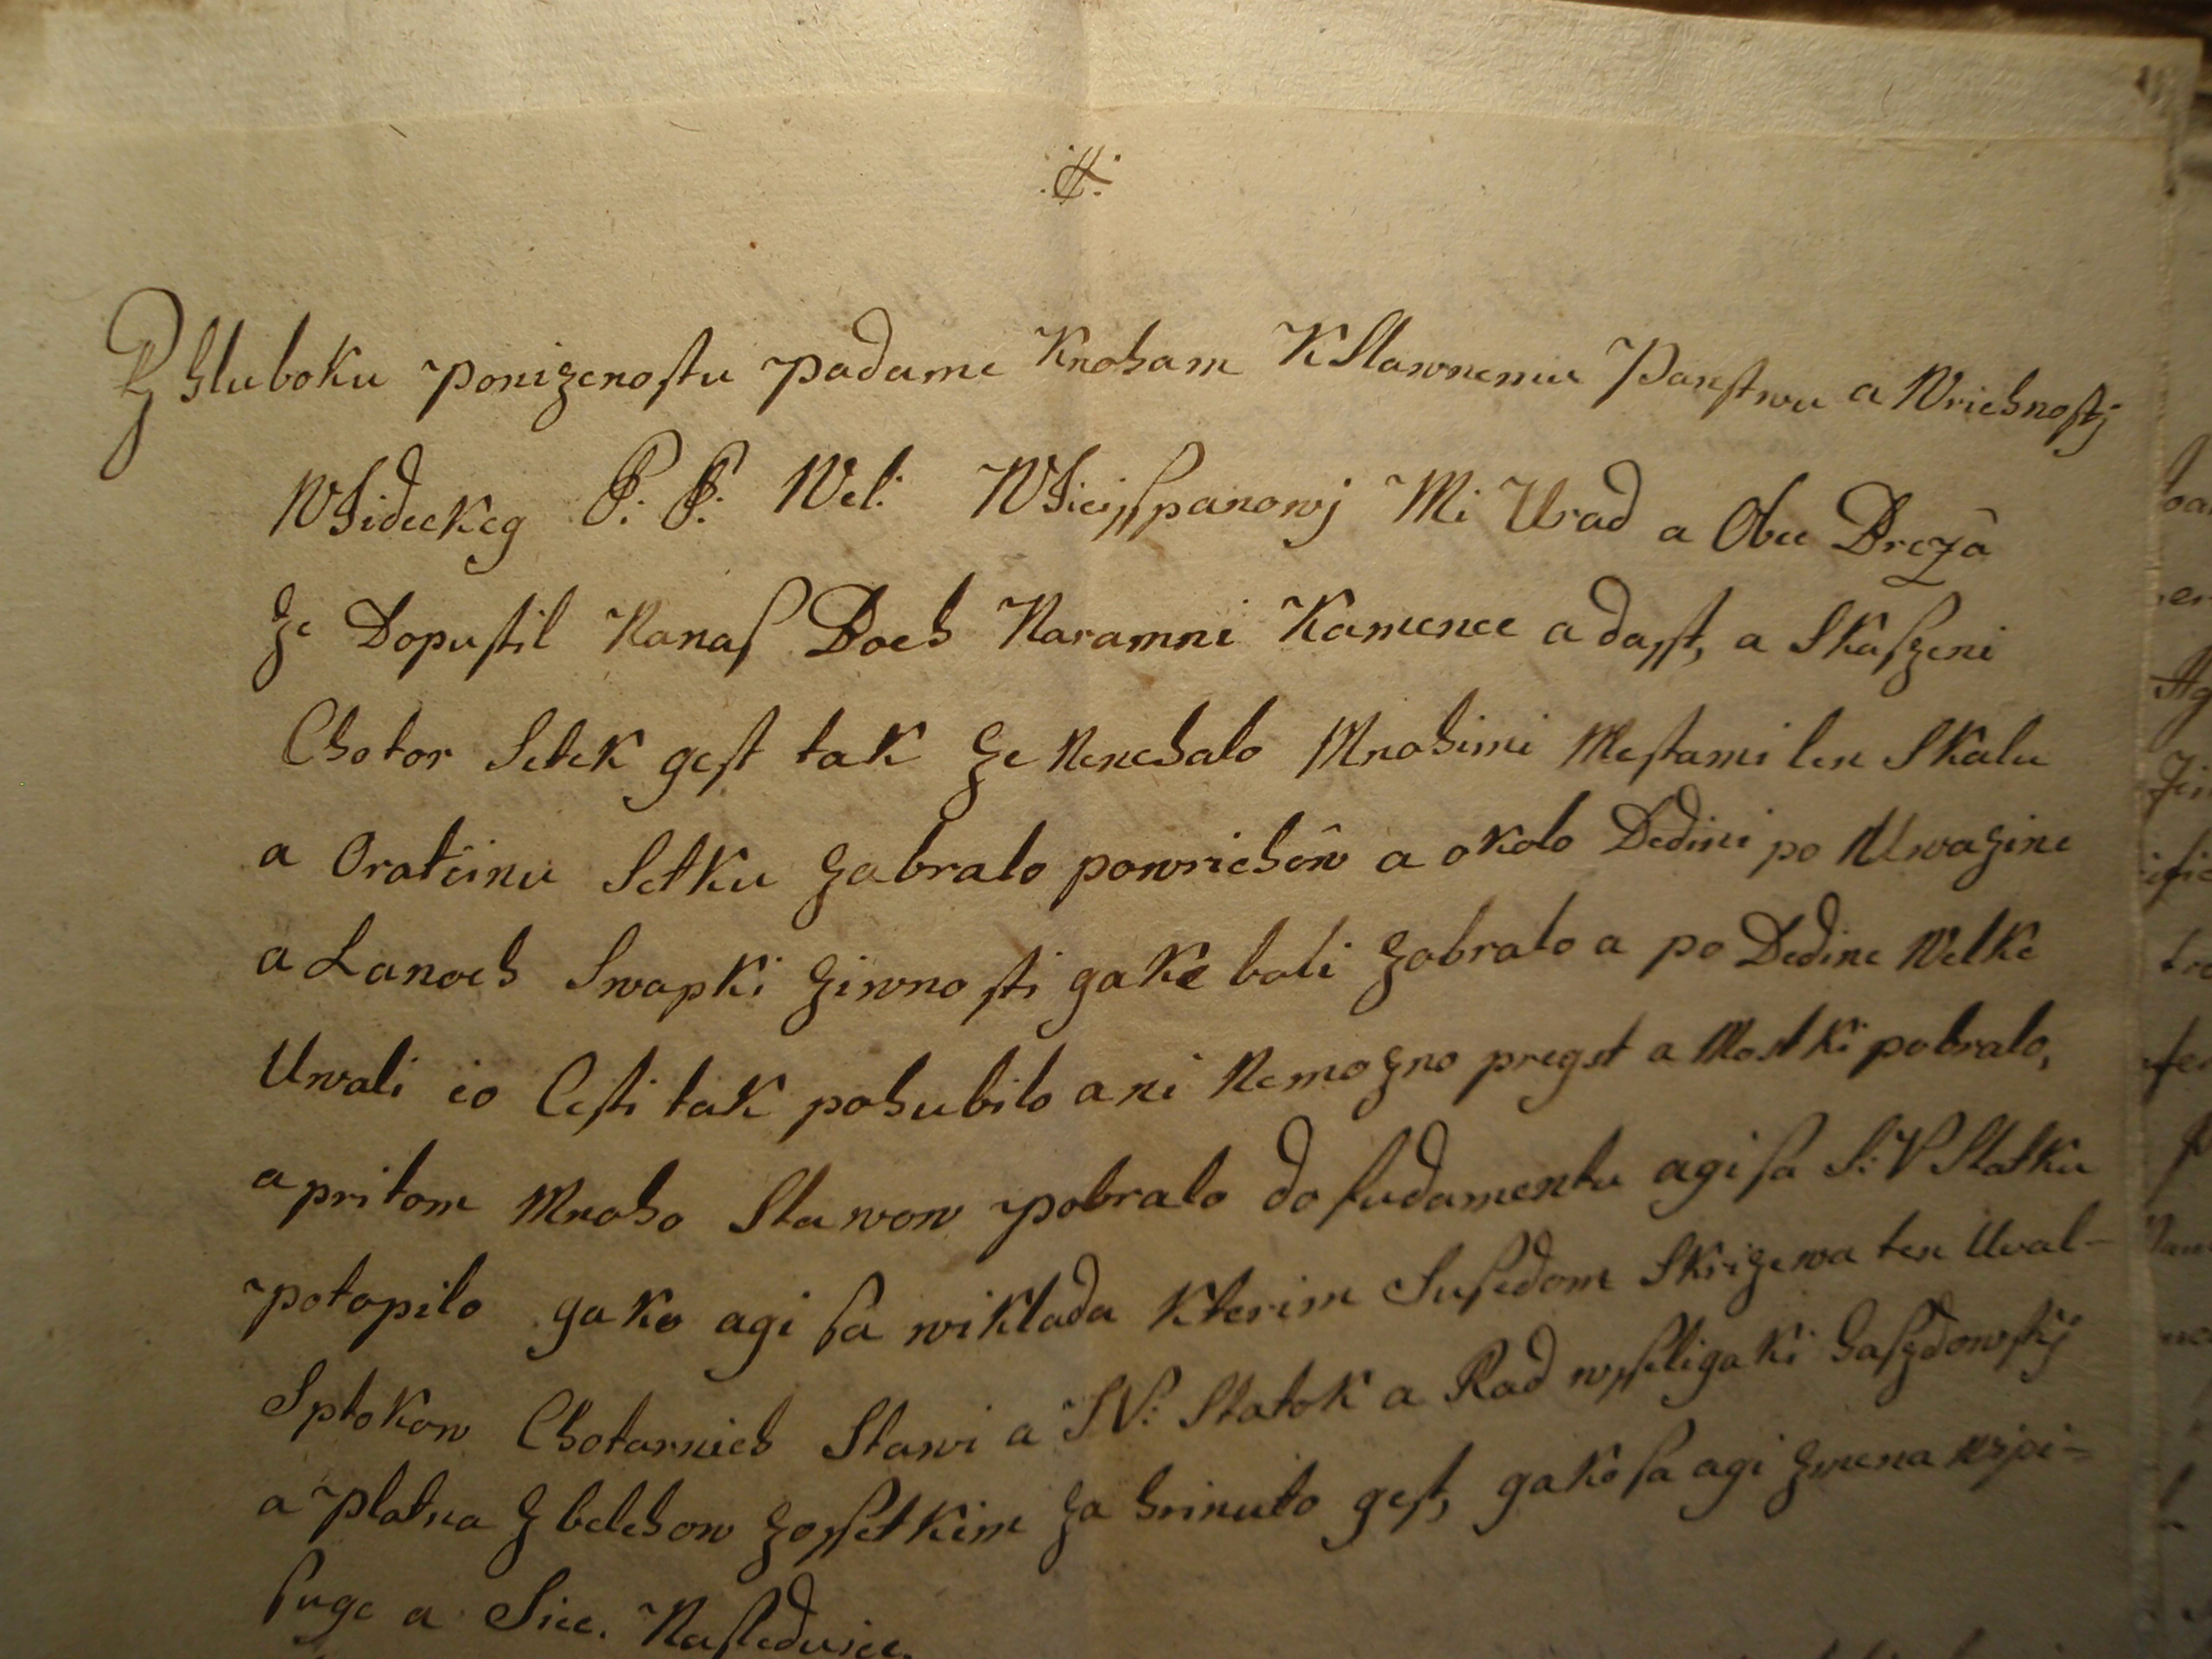 Z Hluboku ponizenostu padame Knoham K Slawnemu Panstwu a Wrichnostj
Wssideckeg P: P: Wel: Wicisspanowj Mi Urad a Obec Brezâ
ze Dopustil Nanas Boch Naramni Kamenec a dasst, a Skaszeni
Chotor Setek gest tak ze Nenechalo Mnohimi Mestami len Skalu
a Oratcinu Setku zabralo powrichôw a okolo Dedini po Uwazine
a Lanoch Swapki ziwnosti gake boli zobralo a po Dedine Welke
Uwali co Cesti tak pohubilo ani Nemozno pregst a Mostki pobralo,
a pritom Mnoho Stawow pobralo do fudamentu agi sa S: V Statku
potopilo gako agi sa wiklada Kterim Susedom Skrizewa ten Uval-
Sptokow Chotarnich Stawi a SV: Statok a Rad wsseligaki Haszdowskj
a Platna z belchow zossetkim za hrinuto gest, gako sa agi zmena wipi-
suge a Sice. Nasledujce.